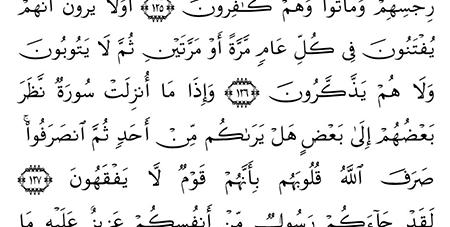 رِجْسِهِمْ وَمَاتُوا۟ وَهُمْ كَـٰفِرُونَ ﴿١٢٥﴾ أَوَلَا يَرَوْنَ أَنَّهُمْ
يُفْتَنُونَ فِى كُلِّ عَامٍ مَّرَّةً أَوْ مَرَّتَيْنِ ثُمَّ لَا يَتُوبُونَ
وَلَا هُمْ يَذَّكَّرُونَ ﴿١٢٦﴾ وَإِذَا مَآ أُنزِلَتْ سُورَةٌ نَّظَرَ
بَعْضُهُمْ إِلَىٰ بَعْضٍ هَلْ يَرَىٰكُم مِّنْ أَحَدٍ ثُمَّ ٱنصَرَفُوا۟ ۚ
صَرَفَ ٱللَّهُ قُلُوبَهُم بِأَنَّهُمْ قَوْمٌ لَّا يَفْقَهُونَ ﴿١٢٧﴾
لَقَدْ جَآءَكُمْ رَسُولٌ مِّنْ أَنفُسِكُمْ عَزِيزٌ عَلَيْهِ مَا